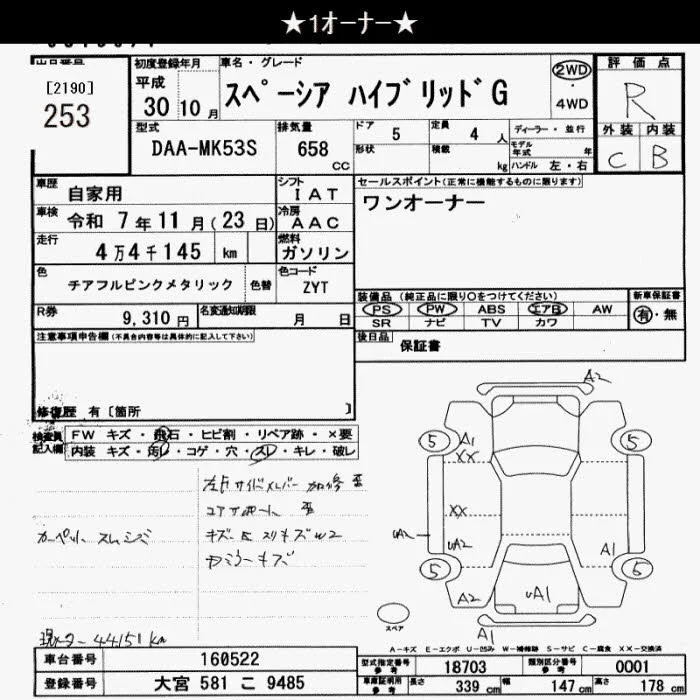 ★1オーナー★
出品番号
[2190]
253
初度登録年月
平成
30 10月
車名・グレード
スペーシア ハイブリッドG
2WD
・
4WD
評価点
R
外装 内装
C B
型式
DAA-MK53S
排気量
658
CC
ドア
5
形状
定員
4 人
積載
kg
ディーラー・並行
モデル年式 年
ハンドル 左・右
車歴
自家用
シフト
IAT
車検
令和 7年11月(23日)
冷房
AAC
走行
4万4千145 km
燃料
ガソリン
色
チアフルピンクメタリック
色替
色コード
ZYT
R券
9,310円
名変通知期限
月 日
セールスポイント(正常に機能するものに限ります)
ワンオーナー
装備品 (純正品に限り○をつけてください)
PS PW ABS エアB AW
SR ナビ TV カワ
新車保証書
有・無
後日品
保証書
注意事項申告欄(不具合内容等は具体的に記入して下さい)
修復歴 有〔箇所 〕
検査員記入欄
FW キズ・飛石・ヒビ割・リペア跡・×要
内装 キズ・汚レ・コゲ・穴・スレ・キレ・破レ
カーペット スレ シミ
コアサポート 歪
ドアミラーキズ
現メーター 44151 km
A2
5
A1
XX
5
XX
UA2
UA2
A1
5
A2
UA1
5
A1
スペア
A-キズ E-エクボ U-凹み W-補修跡 S-サビ C-腐食 XX-交換済
車台番号
160522
型式指定番号
参考
18703
類別区分番号
参考
0001
登録番号
大宮 581 こ 9485
車庫証明用
参考
長さ 339 cm
幅 147 cm
高さ 178 cm